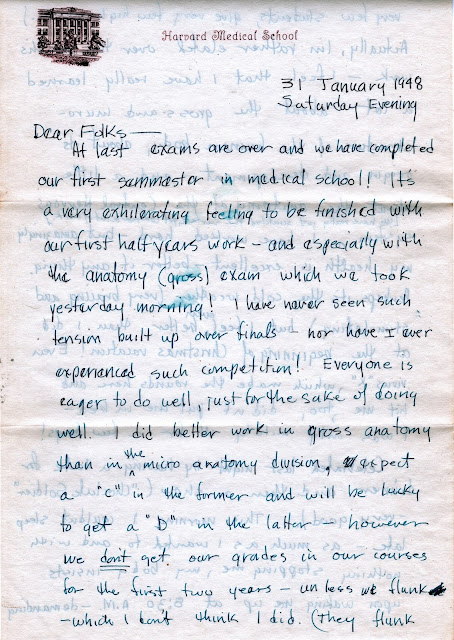 Harvard Medical School
31 January 1948
Saturday Evening
Dear Folks —
At last exams are over and we have completed
our first semmester in medical school! It's
a very exhilerating feeling to be finished with
our first half years work – and especially with
the anatomy (gross) exam which we took
yesterday morning! I have never seen such
tension built up over finals – nor have I ever
experianced such competition! Everyone is
eager to do well, just for the sake of doing
well. I did better work in gross anatomy
than in the micro anatomy division, expect
a "C" in the former and will be lucky
to get a "D" in the latter – however
we don't get our grades in our courses
for the first two years – unless we flunk
– which I don't think I did. (They flunk